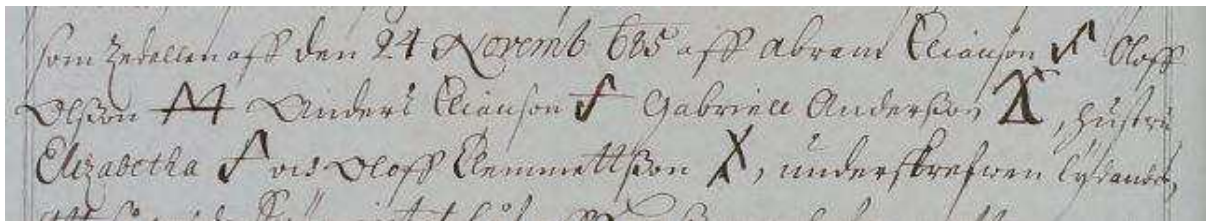 som Zedellen aff den 24 Novemb 685 aff Abram Elianson Oloff
Olsson Anders Elianson Gabriell Andersson, hustru
Elizabetha och Oloff Clemmettsson, underskrefwen lydande,